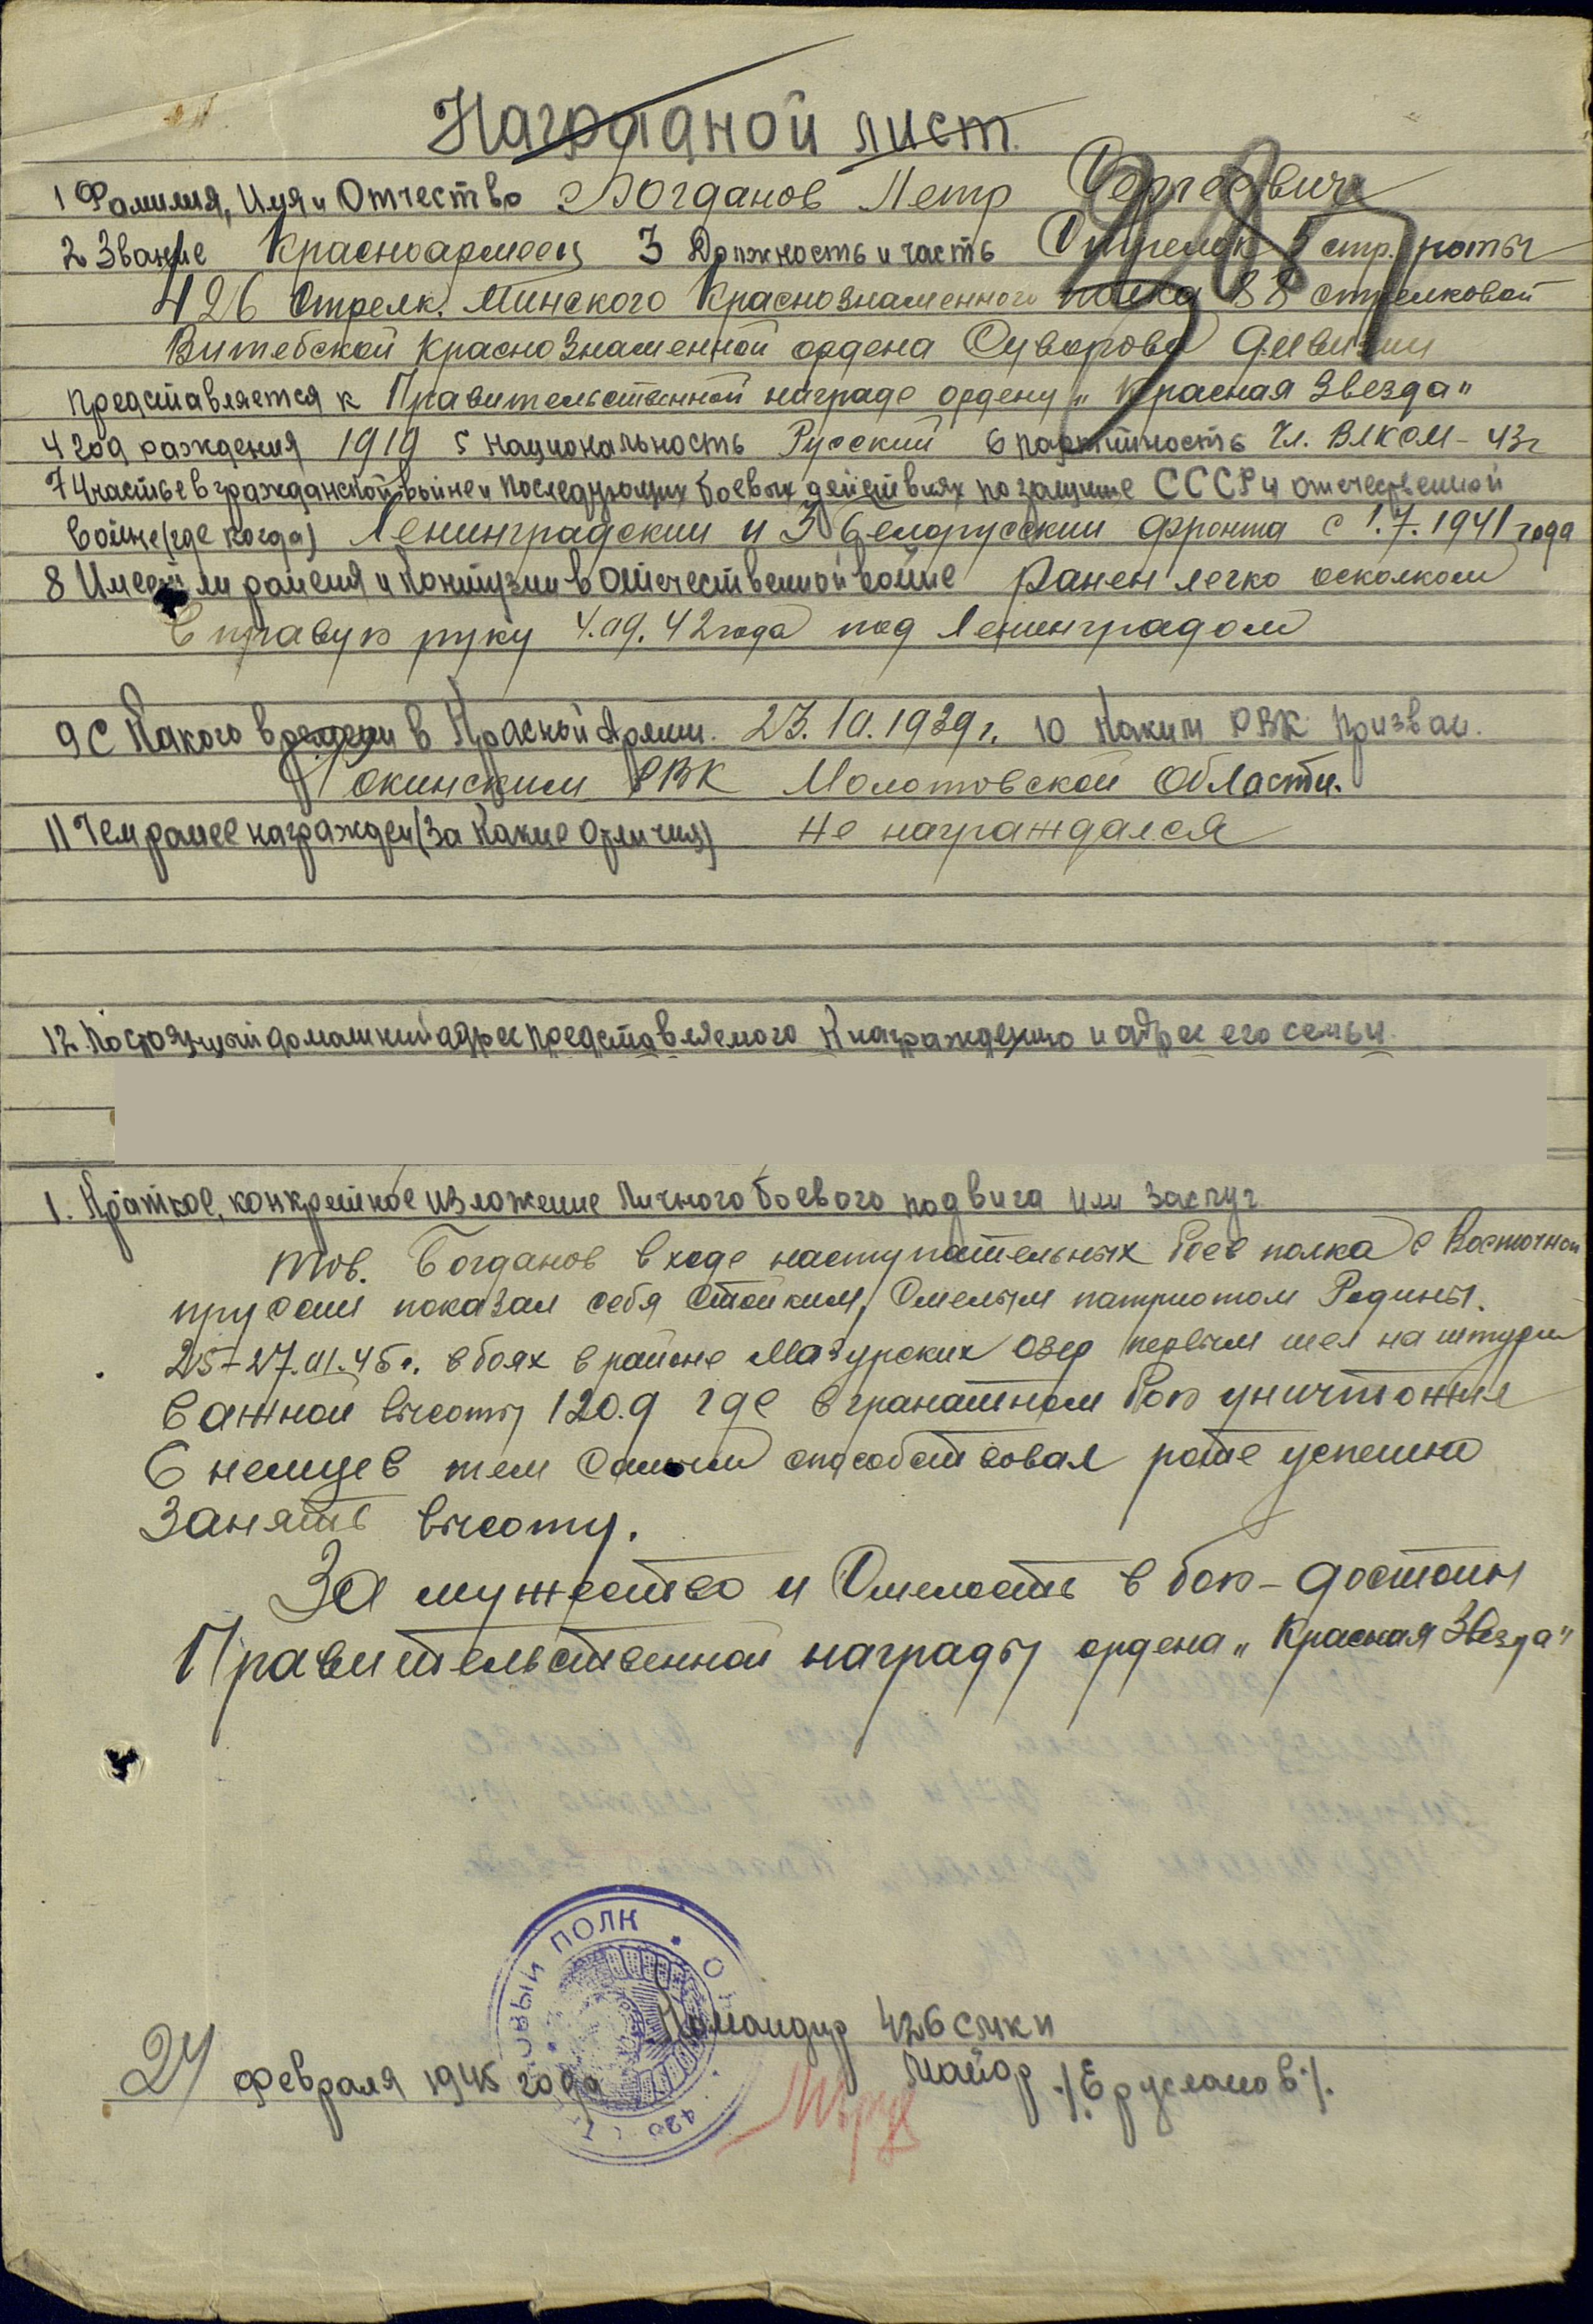 Наградной лист
1 Фамилия, Имя и Отчество Богданов Петр Сергеевич
2 Звание Красноармеец 3 Должность и часть Стрелок стр. роты
426 Стрелк. Минского Краснознаменного полка 88 стрелковой
Витебской Краснознаменной ордена Суворова дивизии
представляется к Правительственной награде ордену „Красная Звезда"
4 год рождения 1919 5 национальность Русский 6 партийность Чл. ВЛКСМ - 43г
7 Участье в гражданской войне и последующих боевых действиях по защите СССР и отечественной
войне (где когда) Ленинградский и 3 Белорусский фронта с 1.7.1941 года
8 Имеет ли ранения и контузии в отечественной войне Ранен легко осколком
в правую руку 4.09.42 года под Ленинградом
9 С какого времени в Красной Армии. 23.10.1939г. 10 Каким РВК призван.
РВК Молотовской области.
11 Чем ранее награжден (за какие отличия) не награждался
12. Постоянный домашний адрес представляемого к награждению и адрес его семьи.
1. Краткое, конкретное изложение личного боевого подвига или заслуг
тов. Богданов в ходе наступательных боев полка в Восточной
пруссии показал себя стойким, смелым патриотом Родины.
25-27.01.45г. в боях в районе Мазурских озер первым шел на штурм
важной высоты 120.9 где в гранатном бою уничтожил
6 немцев тем самым способствовал роте успешно
занять высоту.
За мужество и смелость в бою - достоин
Правительственной награды ордена „Красная Звезда"
ПОЛК
426
Командир 426 смкп
Майор /Ерусланов/.
24 февраля 1945 года